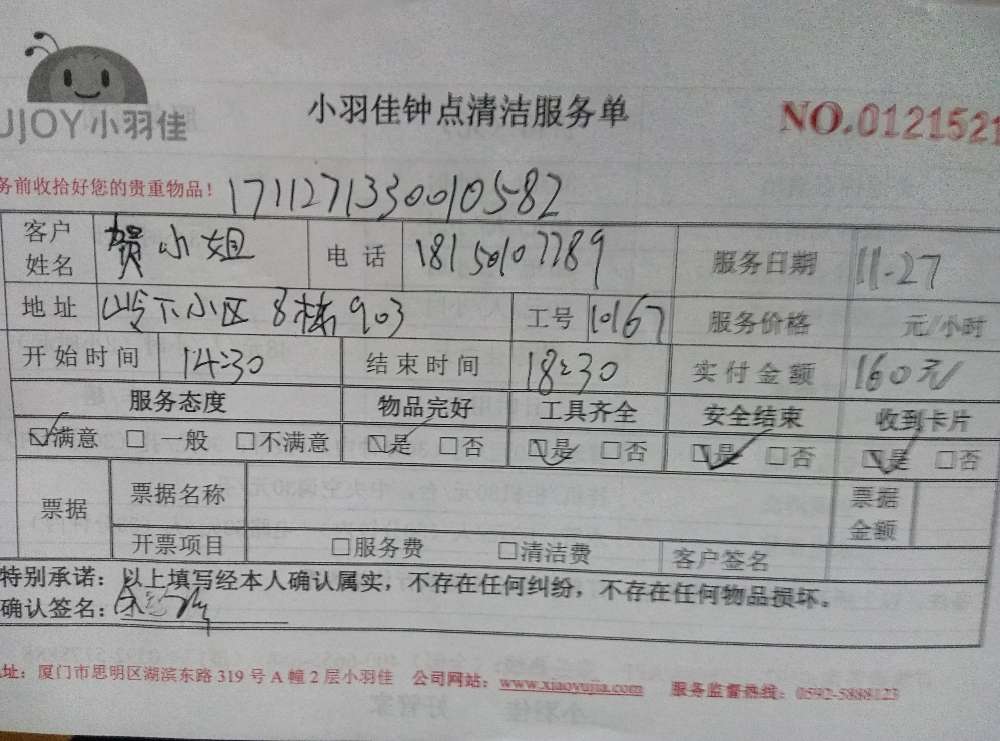 UJOY小羽佳
小羽佳钟点清洁服务单
NO.0121521
务前收拾好您的贵重物品！ 1711271330010582
客户姓名 贺小姐 电话 18150107789 服务日期 11-27
地址 岭下小区8栋903 工号 10167 服务价格 元/小时
开始时间 14:30 结束时间 18:30 实付金额 160元
服务态度 物品完好 工具齐全 安全结束 收到卡片
☑满意 □一般 □不满意 ☑是 □否 ☑是 □否 ☑是 □否 ☑是 □否
票据 票据名称 票据金额
开票项目 □服务费 □清洁费 客户签名
特别承诺：以上填写经本人确认属实，不存在任何纠纷，不存在任何物品损坏。
确认签名：
址：厦门市思明区湖滨东路 319 号 A 幢 2 层小羽佳 公司网站：www.xiaoyujia.com 服务监督热线：0592-5888123